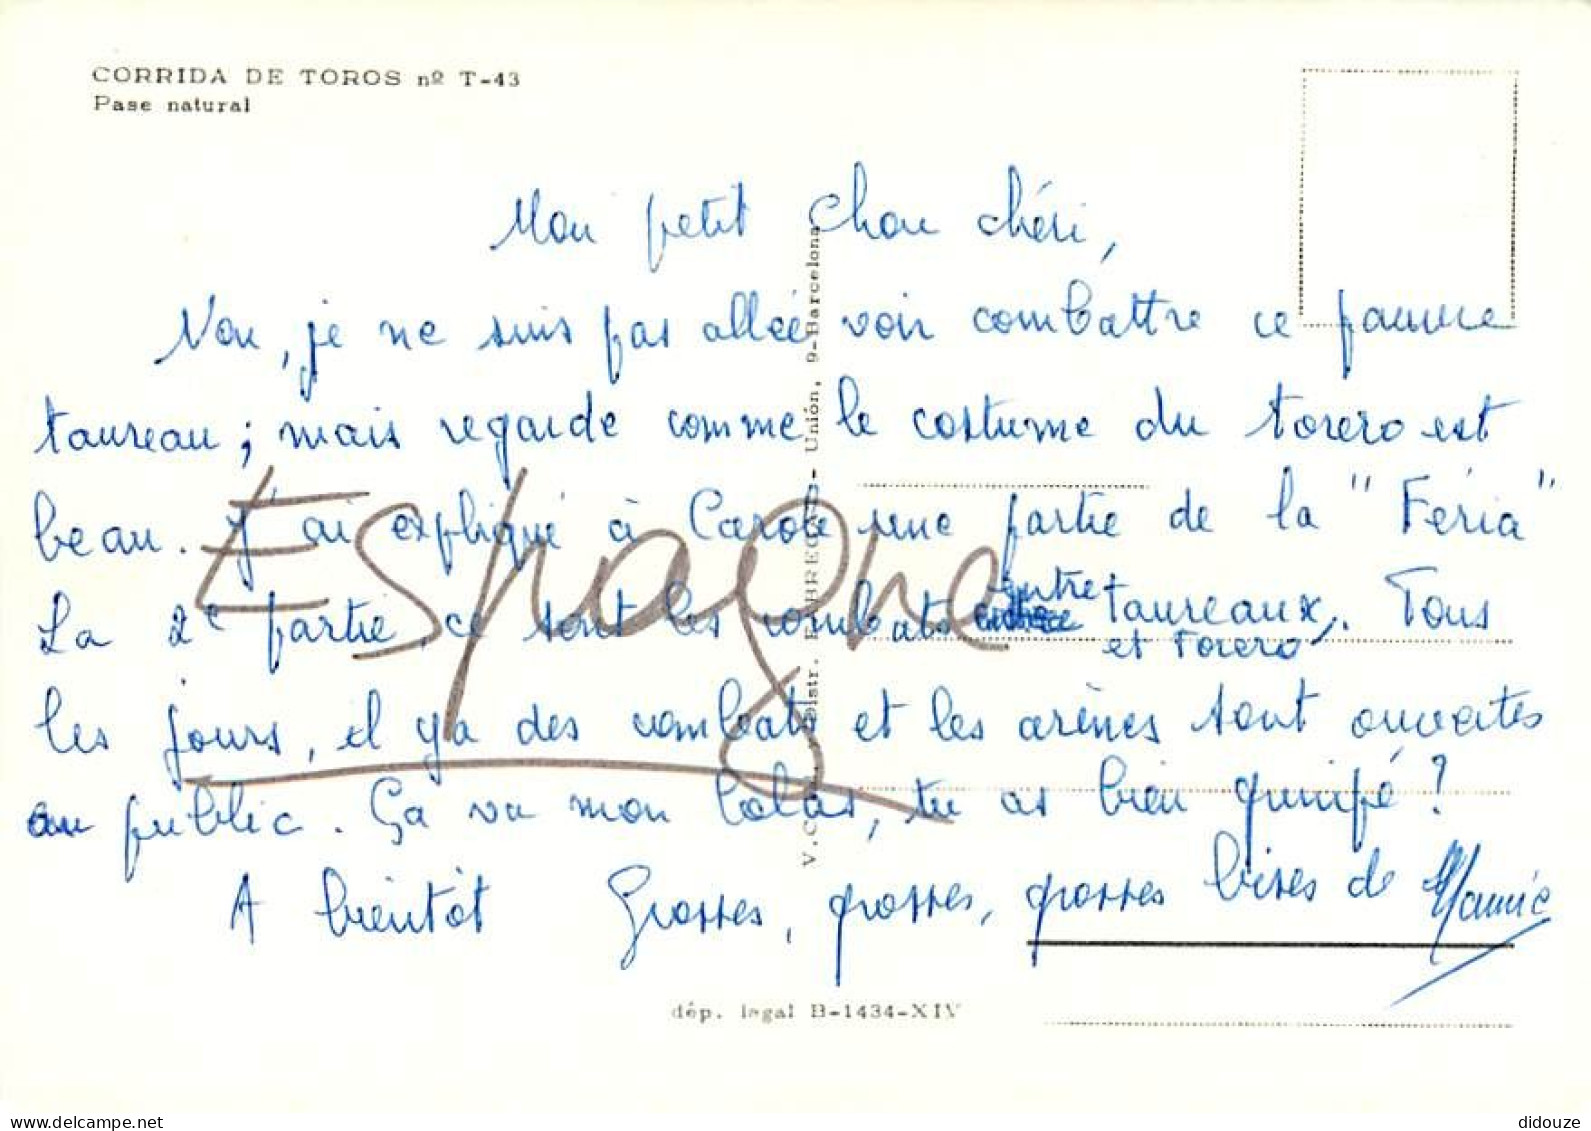 CORRIDA DE TOROS nº T-43
Pase natural
Mon petit Chou chéri,
Non, je ne suis pas allée voir combattre ce pauvre
taureau ; mais regarde comme le costume du torero est
beau. J'ai expliqué à Carole une partie de la "Féria"
La 2e partie, ce sont les combats entre taureaux,.  Tous
et torero
les jours, il y a des combats et les arènes sont ouvertes
au public. Ça va mon Colas, tu as bien grimpé ?
A bientôt Grosses, grosses, grosses bises de Mamie
Espagne
Unión, 9-Barcelona
dép. legal B-1434-XIV
delcampe.net
didouze